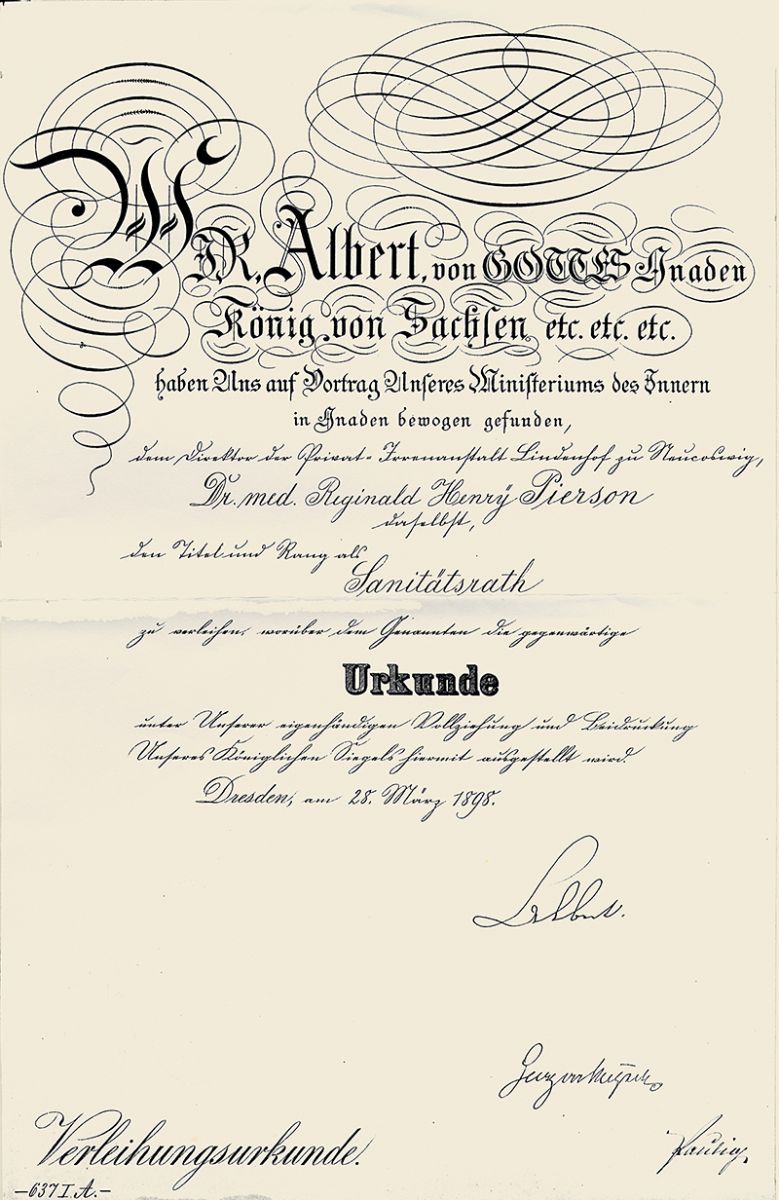 WIR, Albert, von GOTTES Gnaden
König von Sachsen etc. etc. etc.
haben Uns auf Vortrag Unseres Ministeriums des Innern
in Gnaden bewogen gefunden,
dem Direktor der Privat-Irrenanstalt Lindenhof zu Neucoswig,
Dr. med. Reginald Henry Pierson
daselbst,
den Titel und Rang als
Sanitätsrath
zu verleihen, worüber dem Genannten die gegenwärtige
Urkunde
unter Unserer eigenhändigen Vollziehung und Beidruckung
Unseres Königlichen Siegels hiermit ausgestellt wird.
Dresden, am 28. März 1898.
Albert.
Verleihungsurkunde.
Paulig.
—637 I. A.—